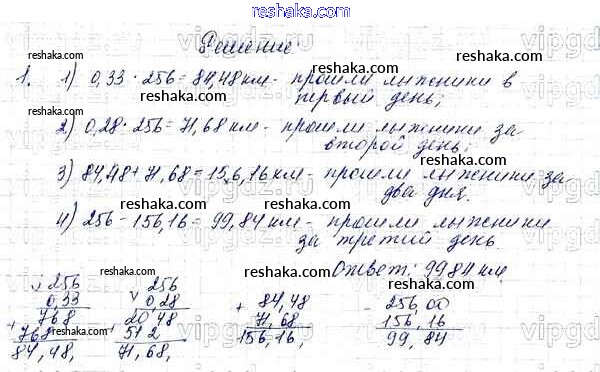 reshaka.com
Решение
1. 1) 0,33 · 256 = 84,48 км - прошли лыжники в
первый день;
2) 0,28 · 256 = 71,68 км - прошли лыжники за
второй день;
3) 84,48 + 71,68 = 156,16 км - прошли лыжники за
два дня.
4) 256 - 156,16 = 99,84 км - прошли лыжники
за третий день
Ответ: 99,84 км.
× 256
0,33
768
+ 768
84,48,
× 256
0,28
20 48
+ 51 2
71,68,
+ 84,48
71,68
156,16,
- 256,00
156,16
99,84
reshaka.com